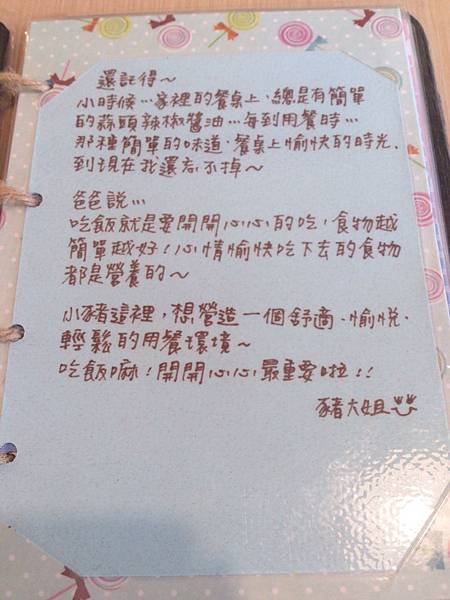 還記得～
小時候…家裡的餐桌上、總是有簡單
的蒜頭辣椒醬油…每到用餐時…
那種簡單的味道、餐桌上愉快的時光、
到現在我還忘不掉～
爸爸說…
吃飯就是要開開心心的吃，食物越
簡單越好！心情愉快吃下去的食物
都是營養的～
小豬這裡，想營造一個舒適、愉悅、
輕鬆的用餐環境～
吃飯嘛！開開心心最重要啦！！
豬大姐